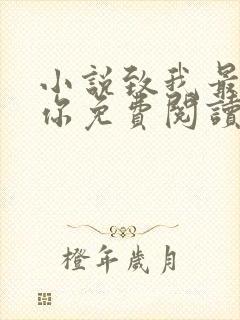 小說致我最
你免費閱讀
橙年歲月